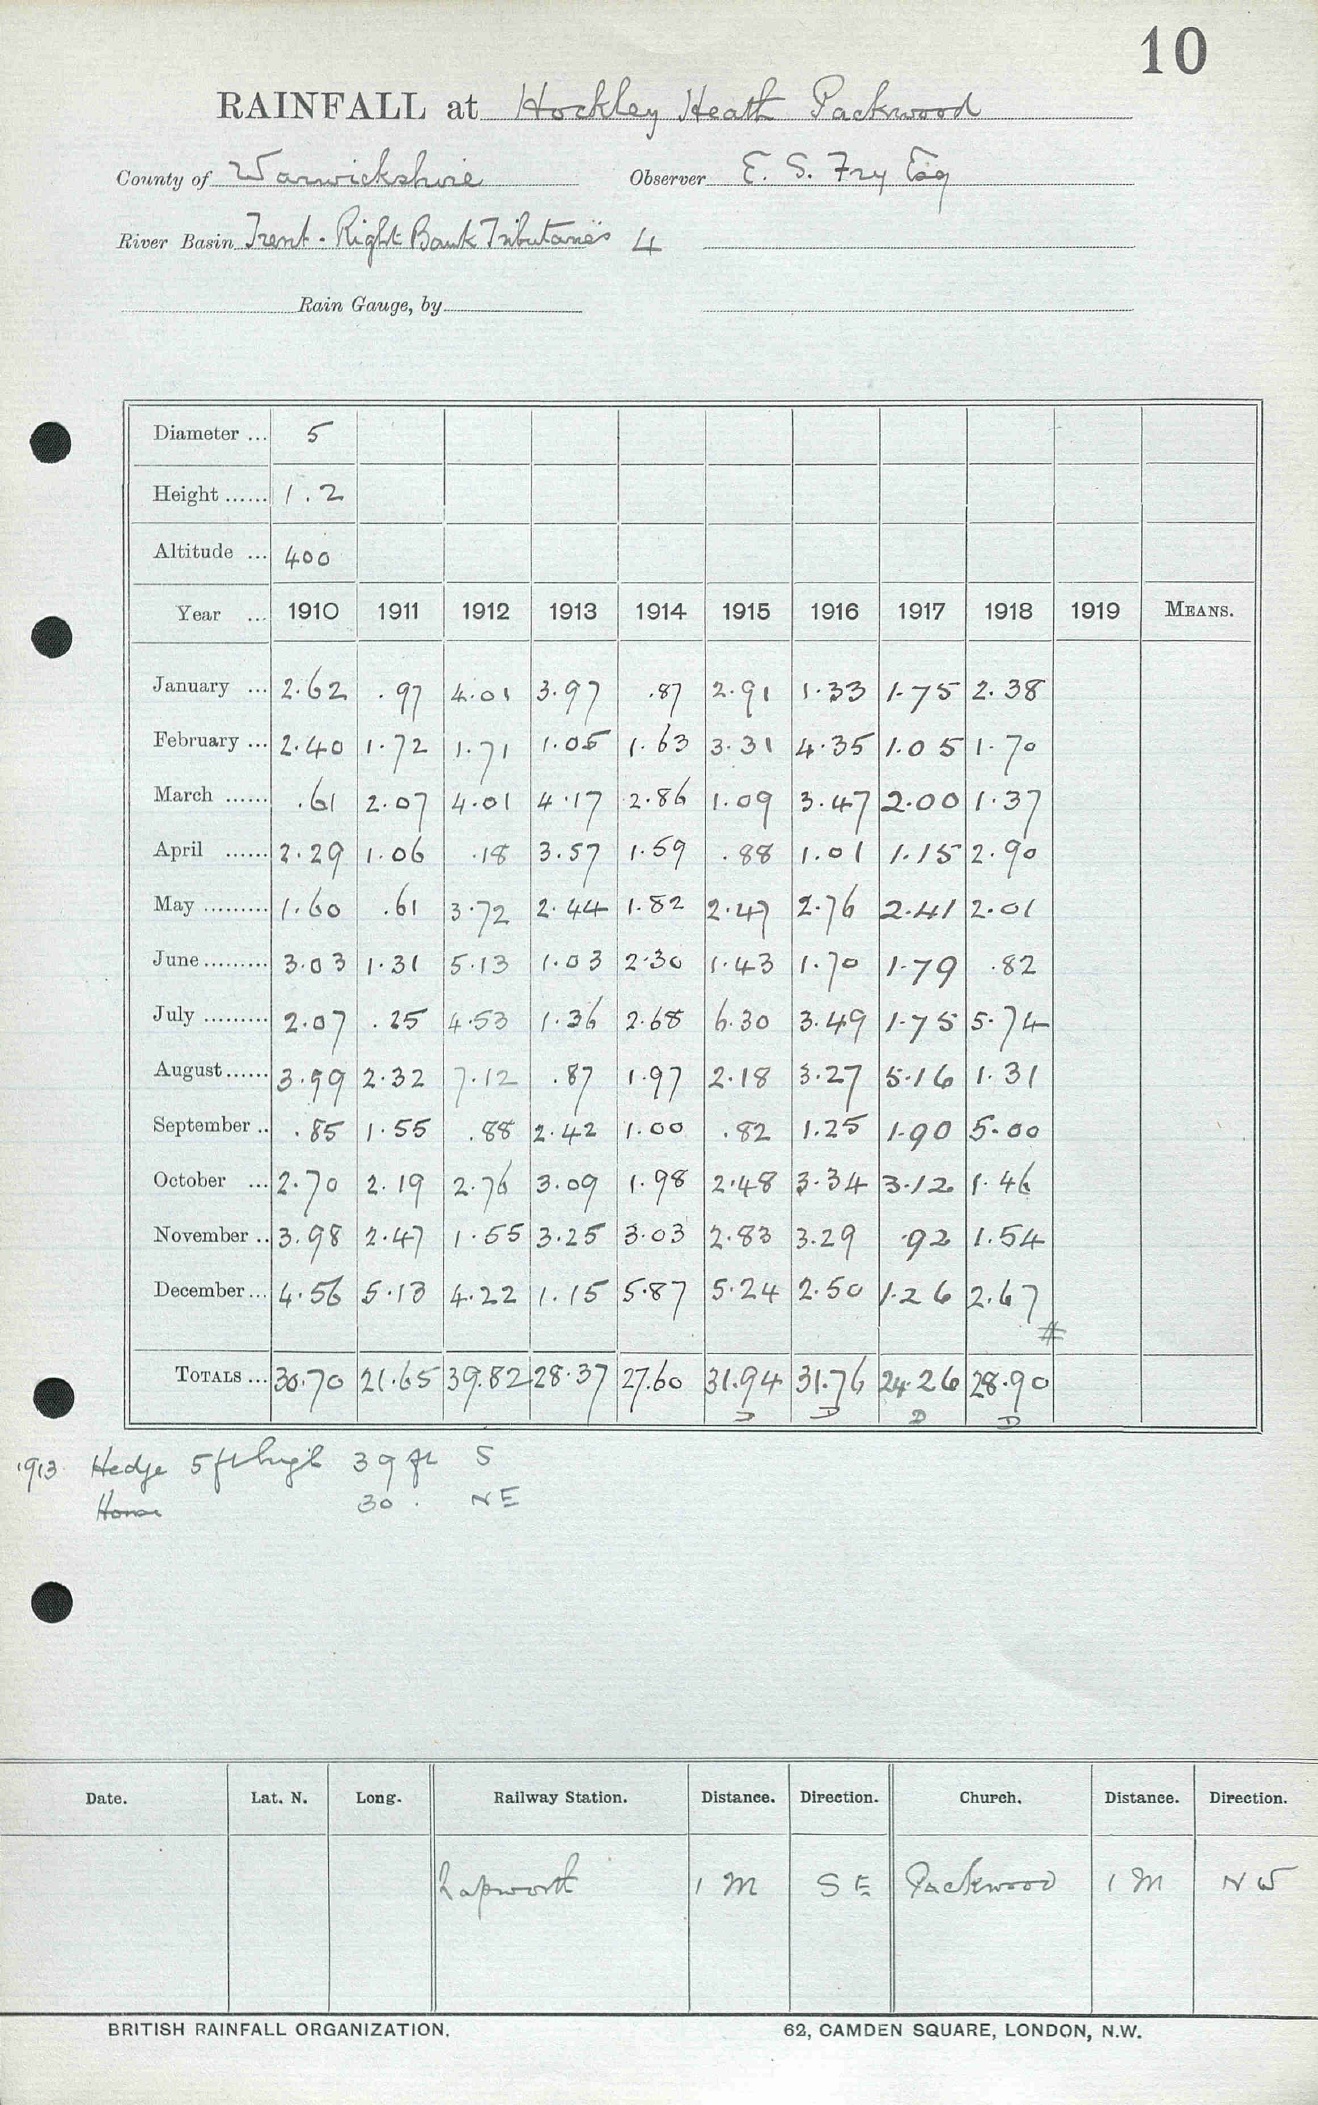 10
RAINFALL at Hockley Heath Packwood
County of Warwickshire Observer E. S. Fry Esq
River Basin Trent - Right Bank Tributaries 4
Rain Gauge, by
Diameter ... 5
Height ...... 1.2
Altitude ... 400
Year ... 1910 1911 1912 1913 1914 1915 1916 1917 1918 1919 MEANS.
January ... 2.62 .97 4.01 3.97 .87 2.91 1.33 1.75 2.38
February ... 2.40 1.72 1.71 1.05 1.63 3.31 4.35 1.05 1.70
March ...... .61 2.07 4.01 4.17 2.86 1.09 3.47 2.00 1.37
April ...... 2.29 1.06 .18 3.57 1.59 .88 1.01 1.15 2.90
May ......... 1.60 .61 3.72 2.44 1.82 2.47 2.76 2.41 2.01
June ......... 3.03 1.31 5.13 1.03 2.30 1.43 1.70 1.79 .82
July ......... 2.07 .25 4.53 1.36 2.68 6.30 3.49 1.75 5.74
August ...... 3.99 2.32 7.12 .87 1.97 2.18 3.27 5.16 1.31
September .. .85 1.55 .88 2.42 1.00 .82 1.25 1.90 5.00
October ... 2.70 2.19 2.76 3.09 1.98 2.48 3.34 3.12 1.46
November .. 3.98 2.47 1.55 3.25 3.03 2.83 3.29 .92 1.54
December ... 4.56 5.13 4.22 1.15 5.87 5.24 2.50 1.26 2.67
#
TOTALS ... 30.70 21.65 39.82 28.37 27.60 31.94 31.76 24.26 28.90
D D D D
1913 Hedge 5 ft high 39 ft S
House 30 . NE
Date. Lat. N. Long. Railway Station. Distance. Direction. Church. Distance. Direction.
Lapworth 1 M SE Packwood 1 M NW
BRITISH RAINFALL ORGANIZATION. 62, CAMDEN SQUARE, LONDON, N.W.